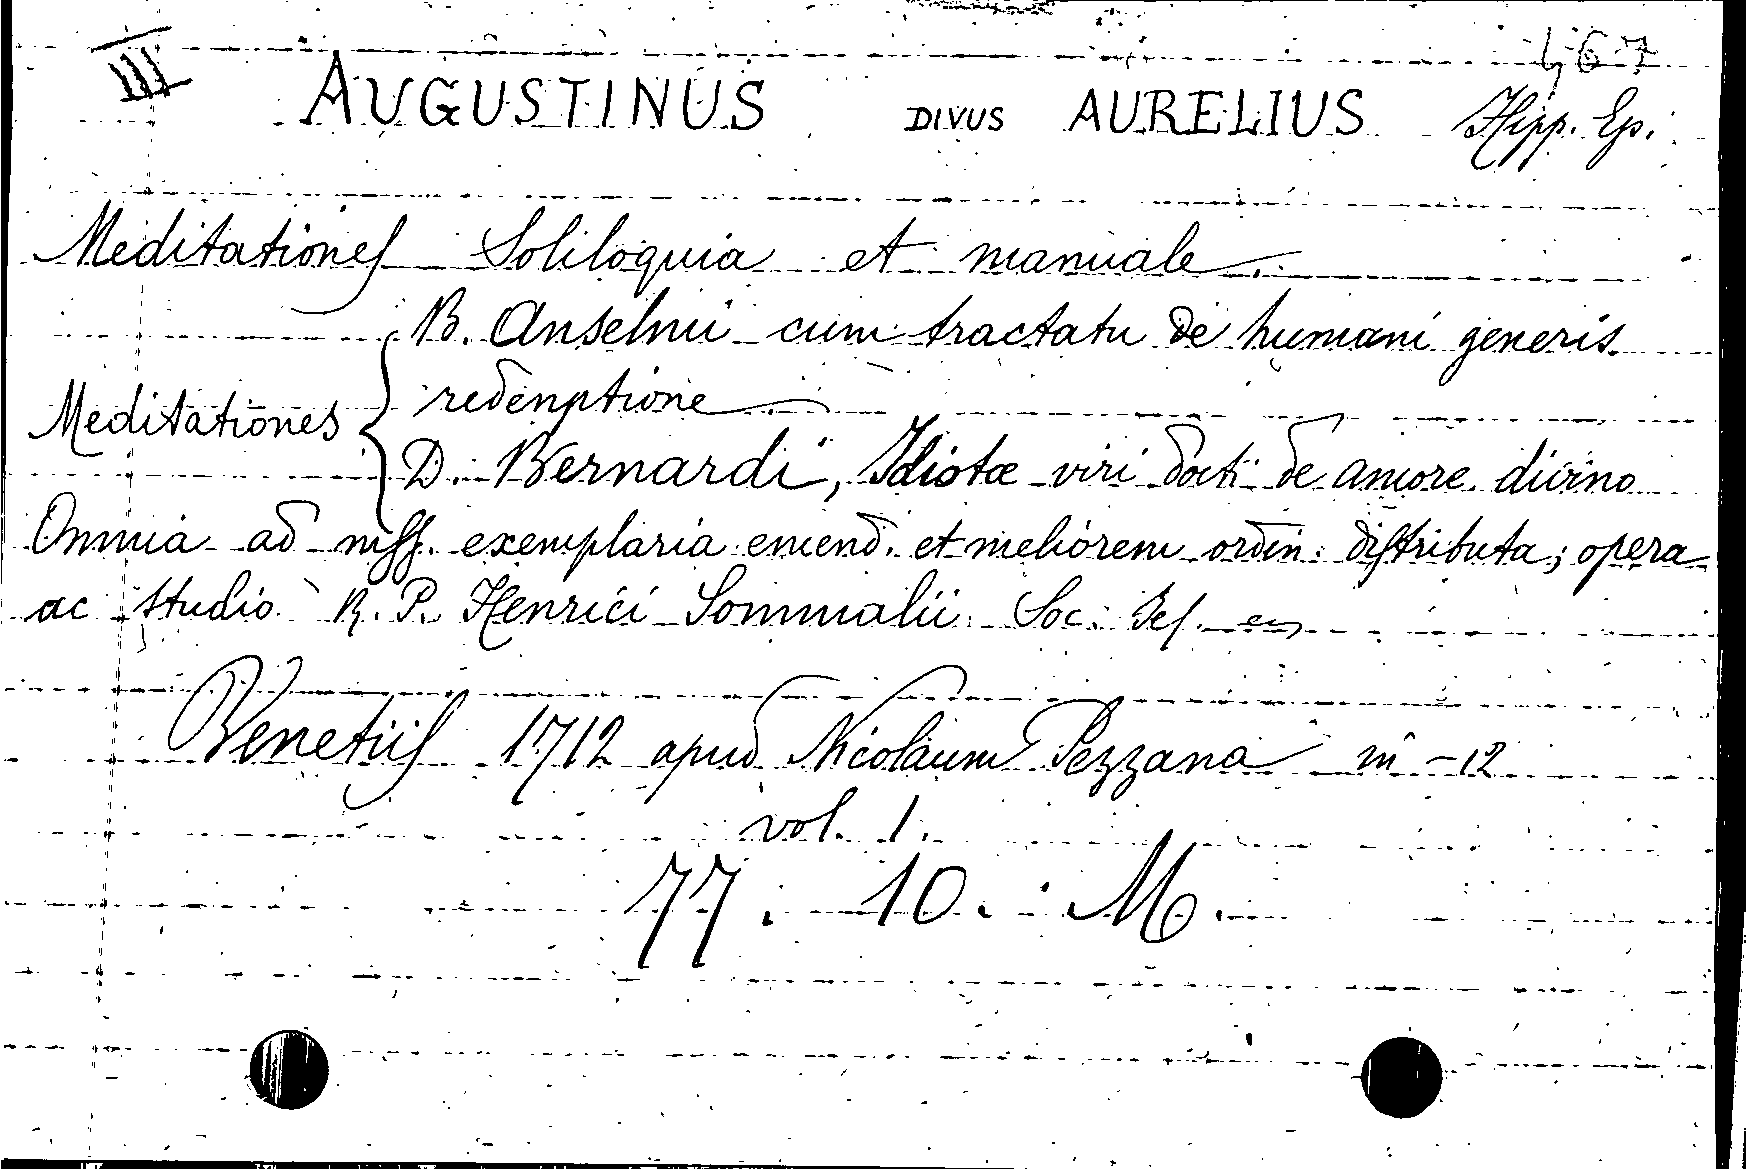 III 467
AUGUSTINUS DIVUS AURELIUS Hipp. Ep.
Meditationes Soliloquia et manuale
B. Anselmi cum tractatu de humani generis
redemptione
Meditationes {
D. Bernardi, Idiotæ viri docti de amore divino
Omnia ad mss. exemplaria emend. et meliorem ordin. distributa; opera
ac studio R. P. Henrici Sommalii Soc. Jes.
Venetiis 1712 apud Nicolaum Pezzana in-12
vol. 1.
77. 10. M.